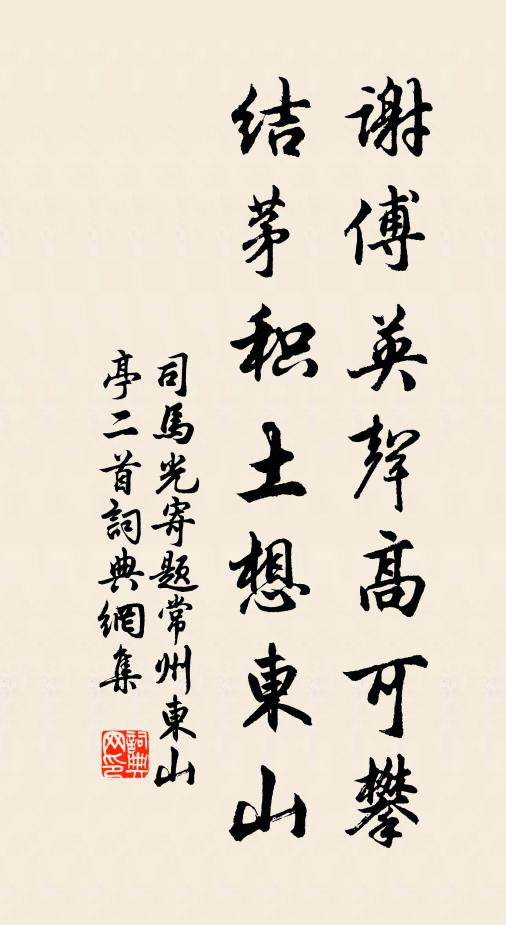 謝傅英聲高可攀
结茅积土想東山
司馬光寄题常州東山
亭二首詞典網集
詞典
网印